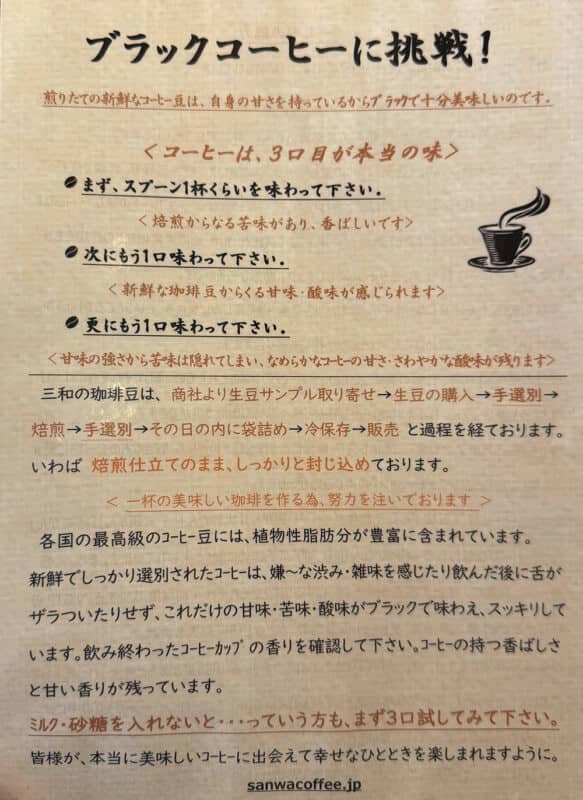 ブラックコーヒーに挑戦!
煎りたての新鮮なコーヒー豆は、自身の甘さを持っているからブラックで十分美味しいのです。
<コーヒーは、3口目が本当の味>
まず、スプーン1杯くらいを味わって下さい.
<焙煎からなる苦味があり、香ばしいです>
次にもう1口味わって下さい.
<新鮮な珈琲豆からくる甘味・酸味が感じられます>
更にもう1口味わって下さい.
<甘味の強さから苦味は隠れてしまい、なめらかなコーヒーの甘さ・さわやかな酸味が残ります>
三和の珈琲豆は、商社より生豆サンプル取り寄せ→生豆の購入→手選別→
焙煎→手選別→その日の内に袋詰め→冷保存→販売 と過程を経ております。
いわば 焙煎仕立てのまま、しっかりと封じ込めております。
< 一杯の美味しい珈琲を作る為、努力を注いでおります >
各国の最高級のコーヒー豆には、植物性脂肪分が豊富に含まれています。
新鮮でしっかり選別されたコーヒーは、嫌~な渋み・雑味を感じたり飲んだ後に舌が
ザラついたりせず、これだけの甘味・苦味・酸味がブラックで味わえ、スッキリして
います。飲み終わったコーヒーカップの香りを確認して下さい。コーヒーの持つ香ばしさ
と甘い香りが残っています。
ミルク・砂糖を入れないと・・・っていう方も、まず3口試してみて下さい。
皆様が、本当に美味しいコーヒーに出会えて幸せなひとときを楽しまれますように。
sanwacoffee.jp